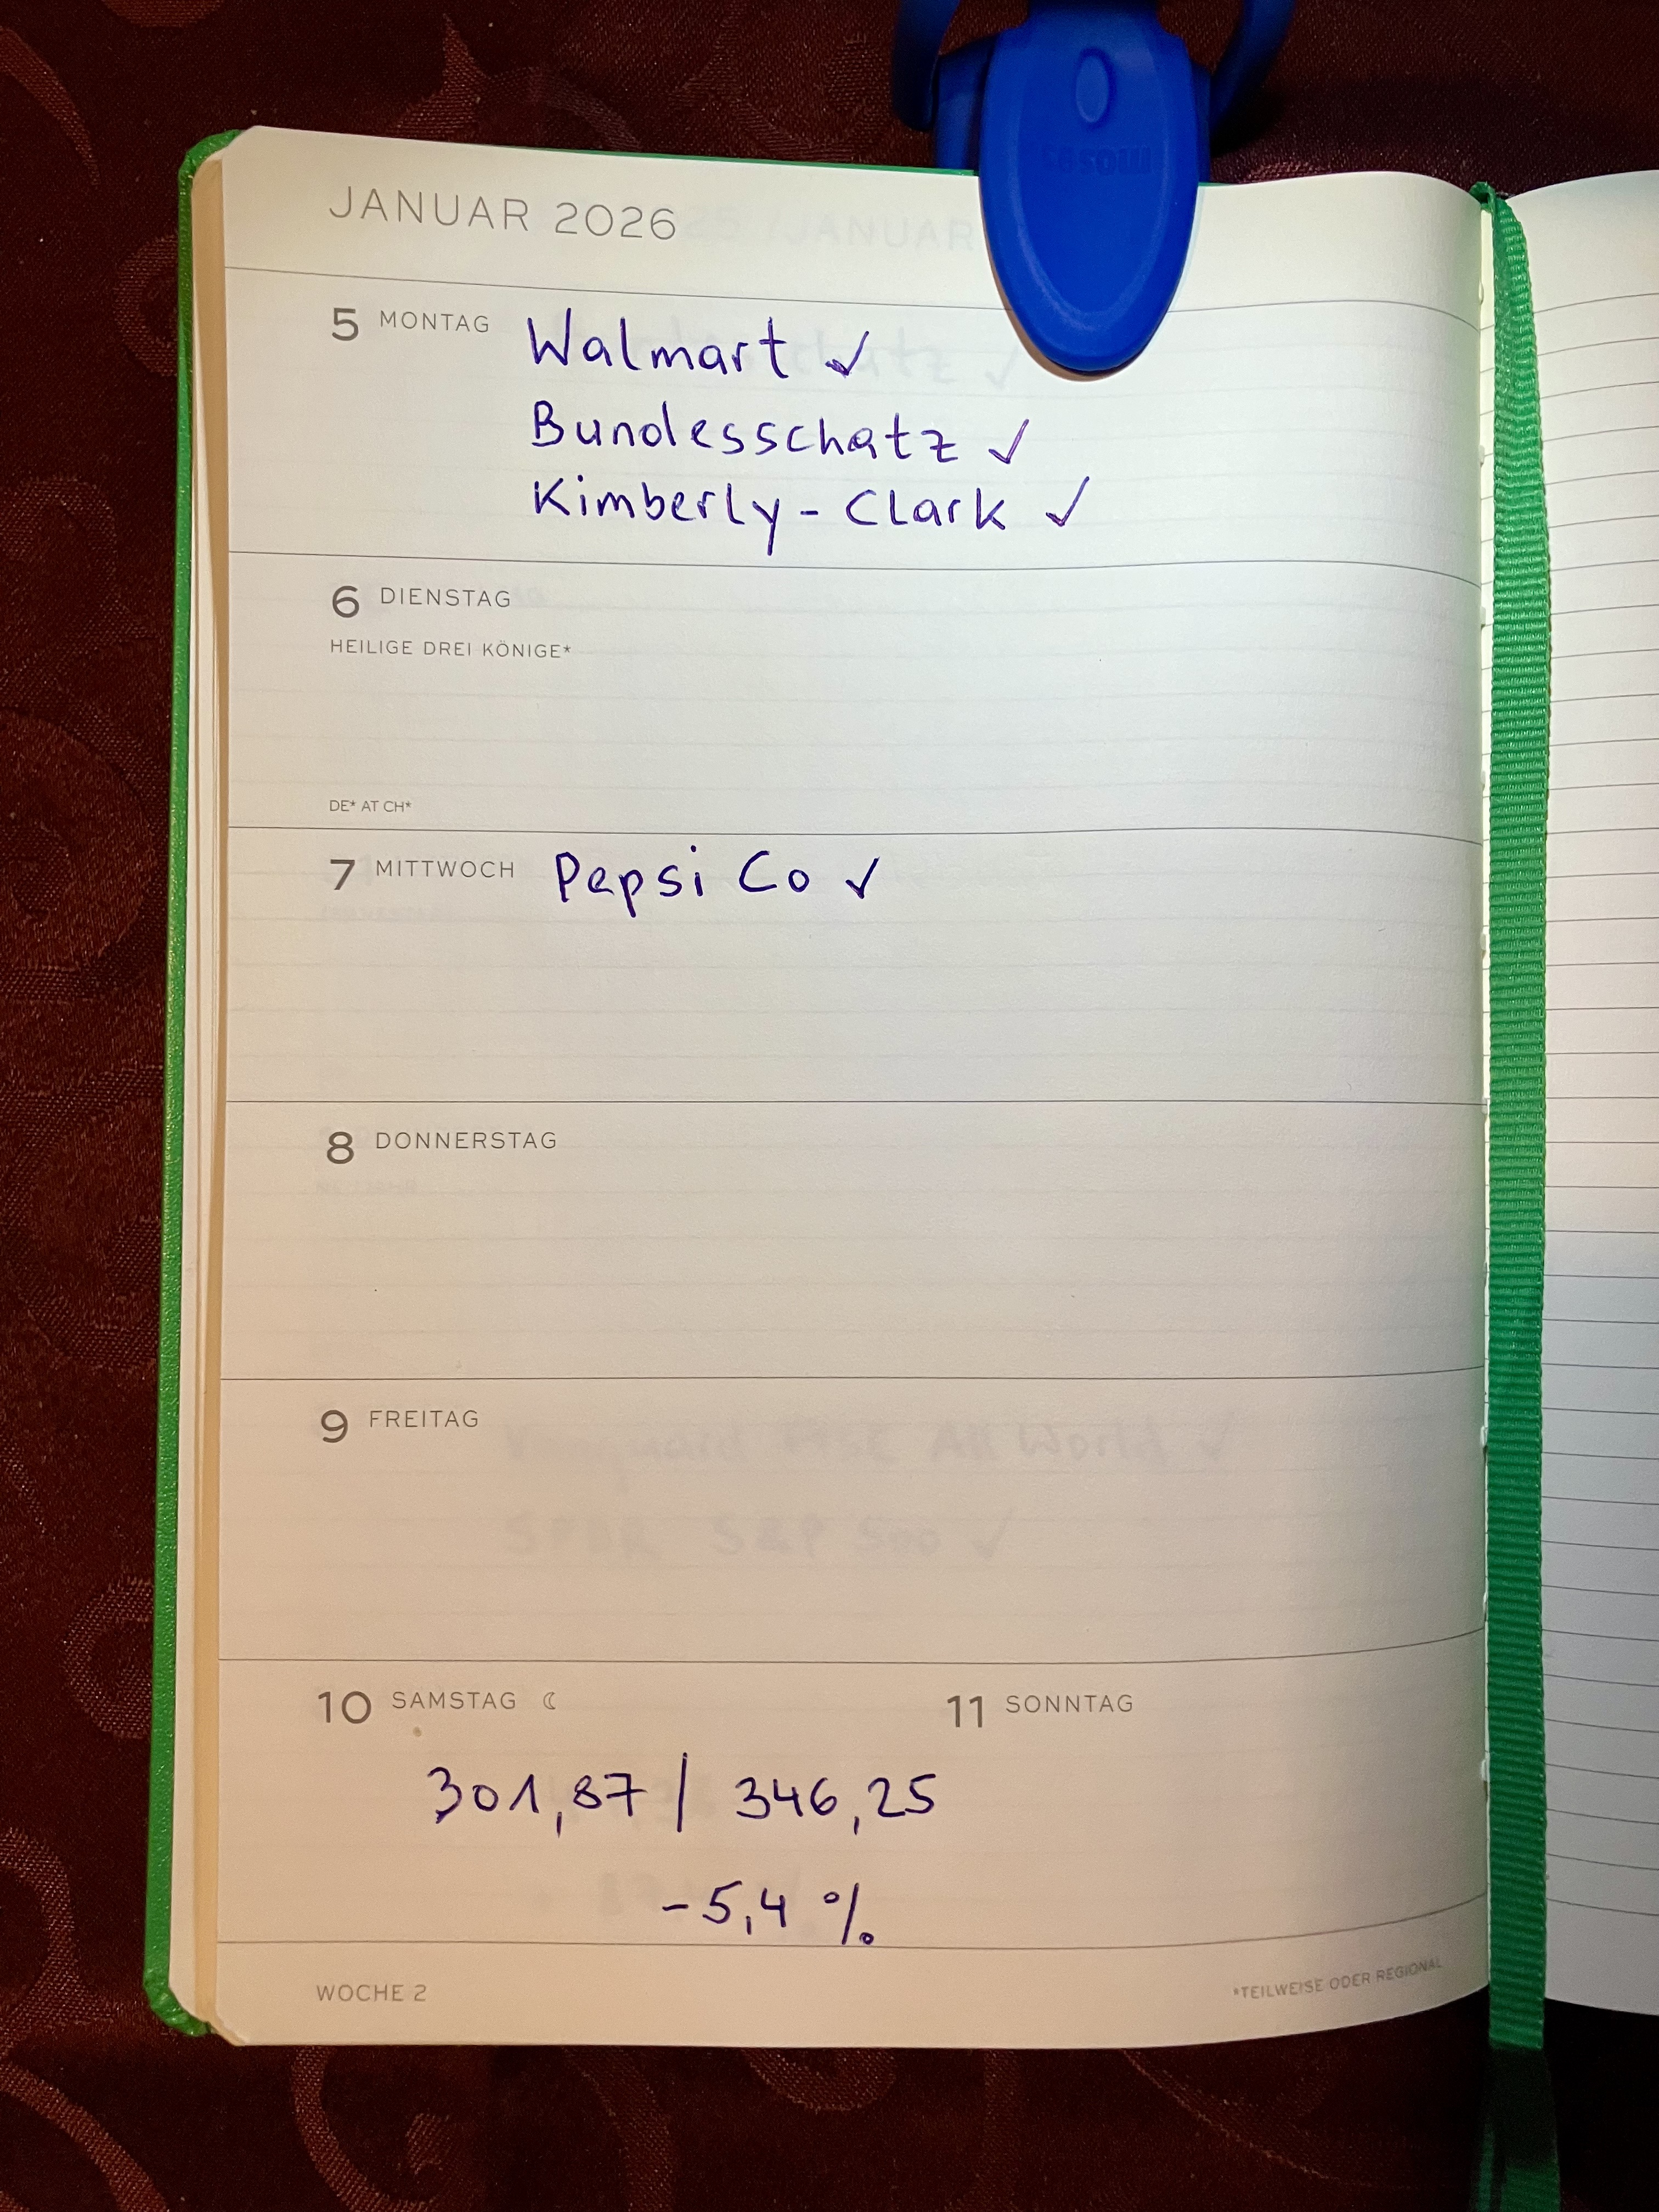 JANUAR 2026
5 MONTAG Walmart ✓
Bundesschatz ✓
Kimberly - Clark ✓
6 DIENSTAG
HEILIGE DREI KÖNIGE*
DE* AT CH*
7 MITTWOCH Pepsi Co ✓
8 DONNERSTAG
9 FREITAG
10 SAMSTAG ☾ 11 SONNTAG
301,87 / 346,25
-5,4 %
WOCHE 2 *TEILWEISE ODER REGIONAL